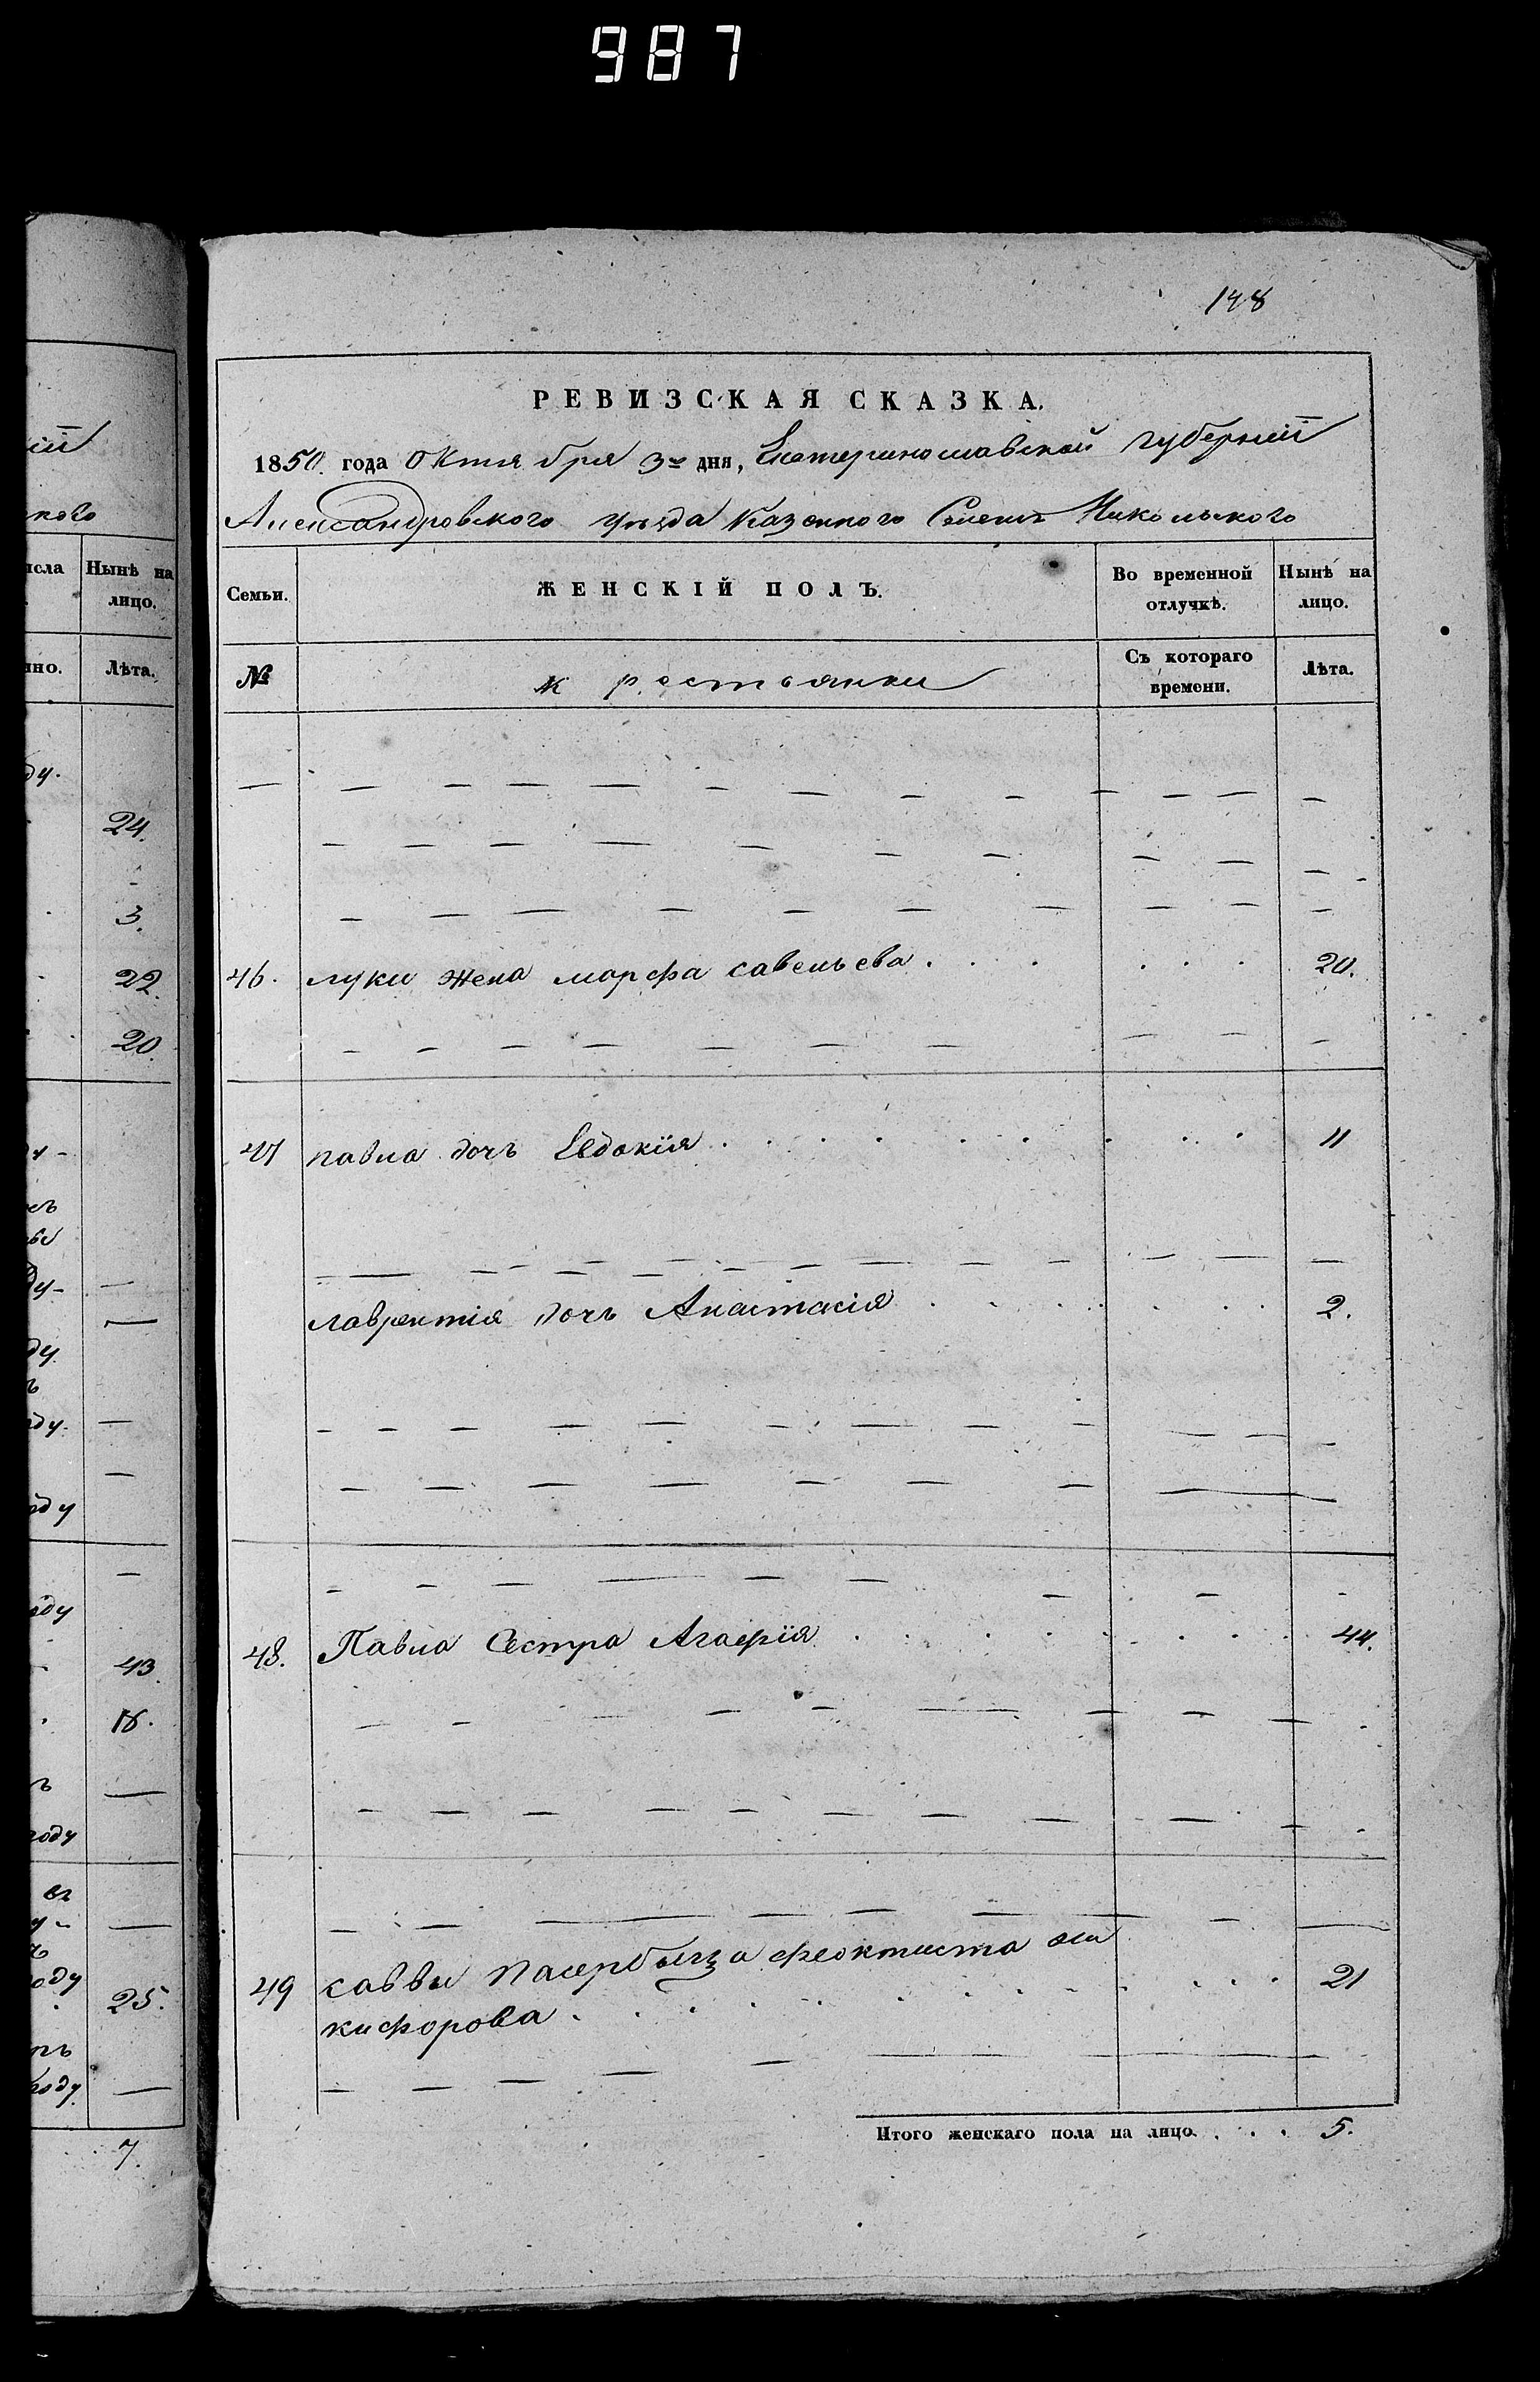 987
148
РЕВИЗСКАЯ СКАЗКА.
1850. года Октября 3го дня, Екатеринославской губерніи
Александровского уѣзда Казенного Селенія Никольского
Семьи.
ЖЕНСКІЙ ПОЛЪ.
Во временной отлучкѣ.
Нынѣ на лицо.
№
крестьянки
Съ котораго времени.
Лѣта.
46. луки жена марфа савельева. 20.
47 павла дочь Евдокія. 11
лаврентія дочь Анастасія 2.
48. Павла Сестра Агафія. 44.
49 саввы пасербица феоктиста ни 21
кифорова.
Итого женскаго пола на лицо. 5.
Нынѣ на
лицо.
Лѣта.
24.
3.
22.
20.
43.
18.
25.
7.